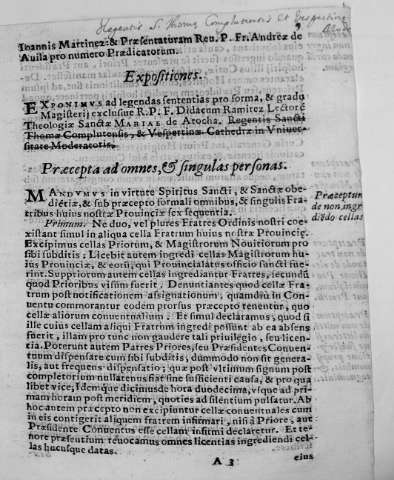 Regentis S. Thomæ Complutensis et Vespertinæ
Ioannis Martinez: & Præsentaturam Reu. P. Fr. Andreæ de
Auila pro numero Prædicatorum.
Expositiones.
EXPONIMVS ad legendas sententias pro forma, & gradu
Magisterij exclusiue R. P. F. Didacum Ramirez Lectorē
Theologiæ Sanctæ MARIAE de Atocha. Regentis Sancti
Thomæ Complutensis, & Vespertinæ Cathedræ in Vniuer-
sitate Moderatoris.
Præcepta ad omnes, & singulas personas.
MANDVMVS in virtute Spiritus Sancti, & Sanctæ obe-
diētiæ, & sub præcepto formali omnibus, & singulis Fra-
tribus huius nostræ Prouinciæ sex sequentia.
Præceptum
de non ingre
diēdo cellas
Primum. Ne duo, vel plures Fratres Ordinis nostri coe-
xistant simul in aliqua cella Fratrum huius nostræ Prouincię.
Excipimus cellas Priorum, & Magistrorum Nouitiorum pro
sibi subditis. Licebit autem ingredi cellas Magistrorum hu-
iùs Prouinciæ, & eorū, qui Prouincialatus officio functi fue-
rint. Suppriorum autem cellas ingrediantur Fratres, iecundū
quod Prioribus visum fuerit. Denuntiantes quod cellæ Fra-
trum post notificationem assignationum, quamdiu in Con-
uentu commorantur eodem prorsus præcepto tenentur, quo
cellæ aliorum conuentualium. Et simul declaramus, quod si
ille cuius cellam aliqui Fratrum ingredi possunt ab ea absens
fuerit, illam pro tunc non gaudere tali priuilegio, seu licen-
tia. Poterunt autem Patres Priores, seu Præsidentes Conuen-
tuum dispensare cum sibi subditis, dummodo non sit genera-
lis, aut frequens dispensatio; quæ post vltimum signum post
completorium nullatenus fiat sine sufficienti causa, & pro qua
libet vice, Idem quę dicimus de hora duodecima, vsque ad pri-
mam horam post meridiem, quoties ad silentium pulsatur. Ab
hoc autem præcepto non excipiuntur cellæ conuentuales cum
in eis contigerit aliquem fratrem infirmari, nisi à Priore, aut
Præsidente Conuentus esse cellam infirmi declaretur. Et te-
nore præsentium reuocamus omnes licentias ingrediendi cel-
las hucusque datas.
A 3 eius